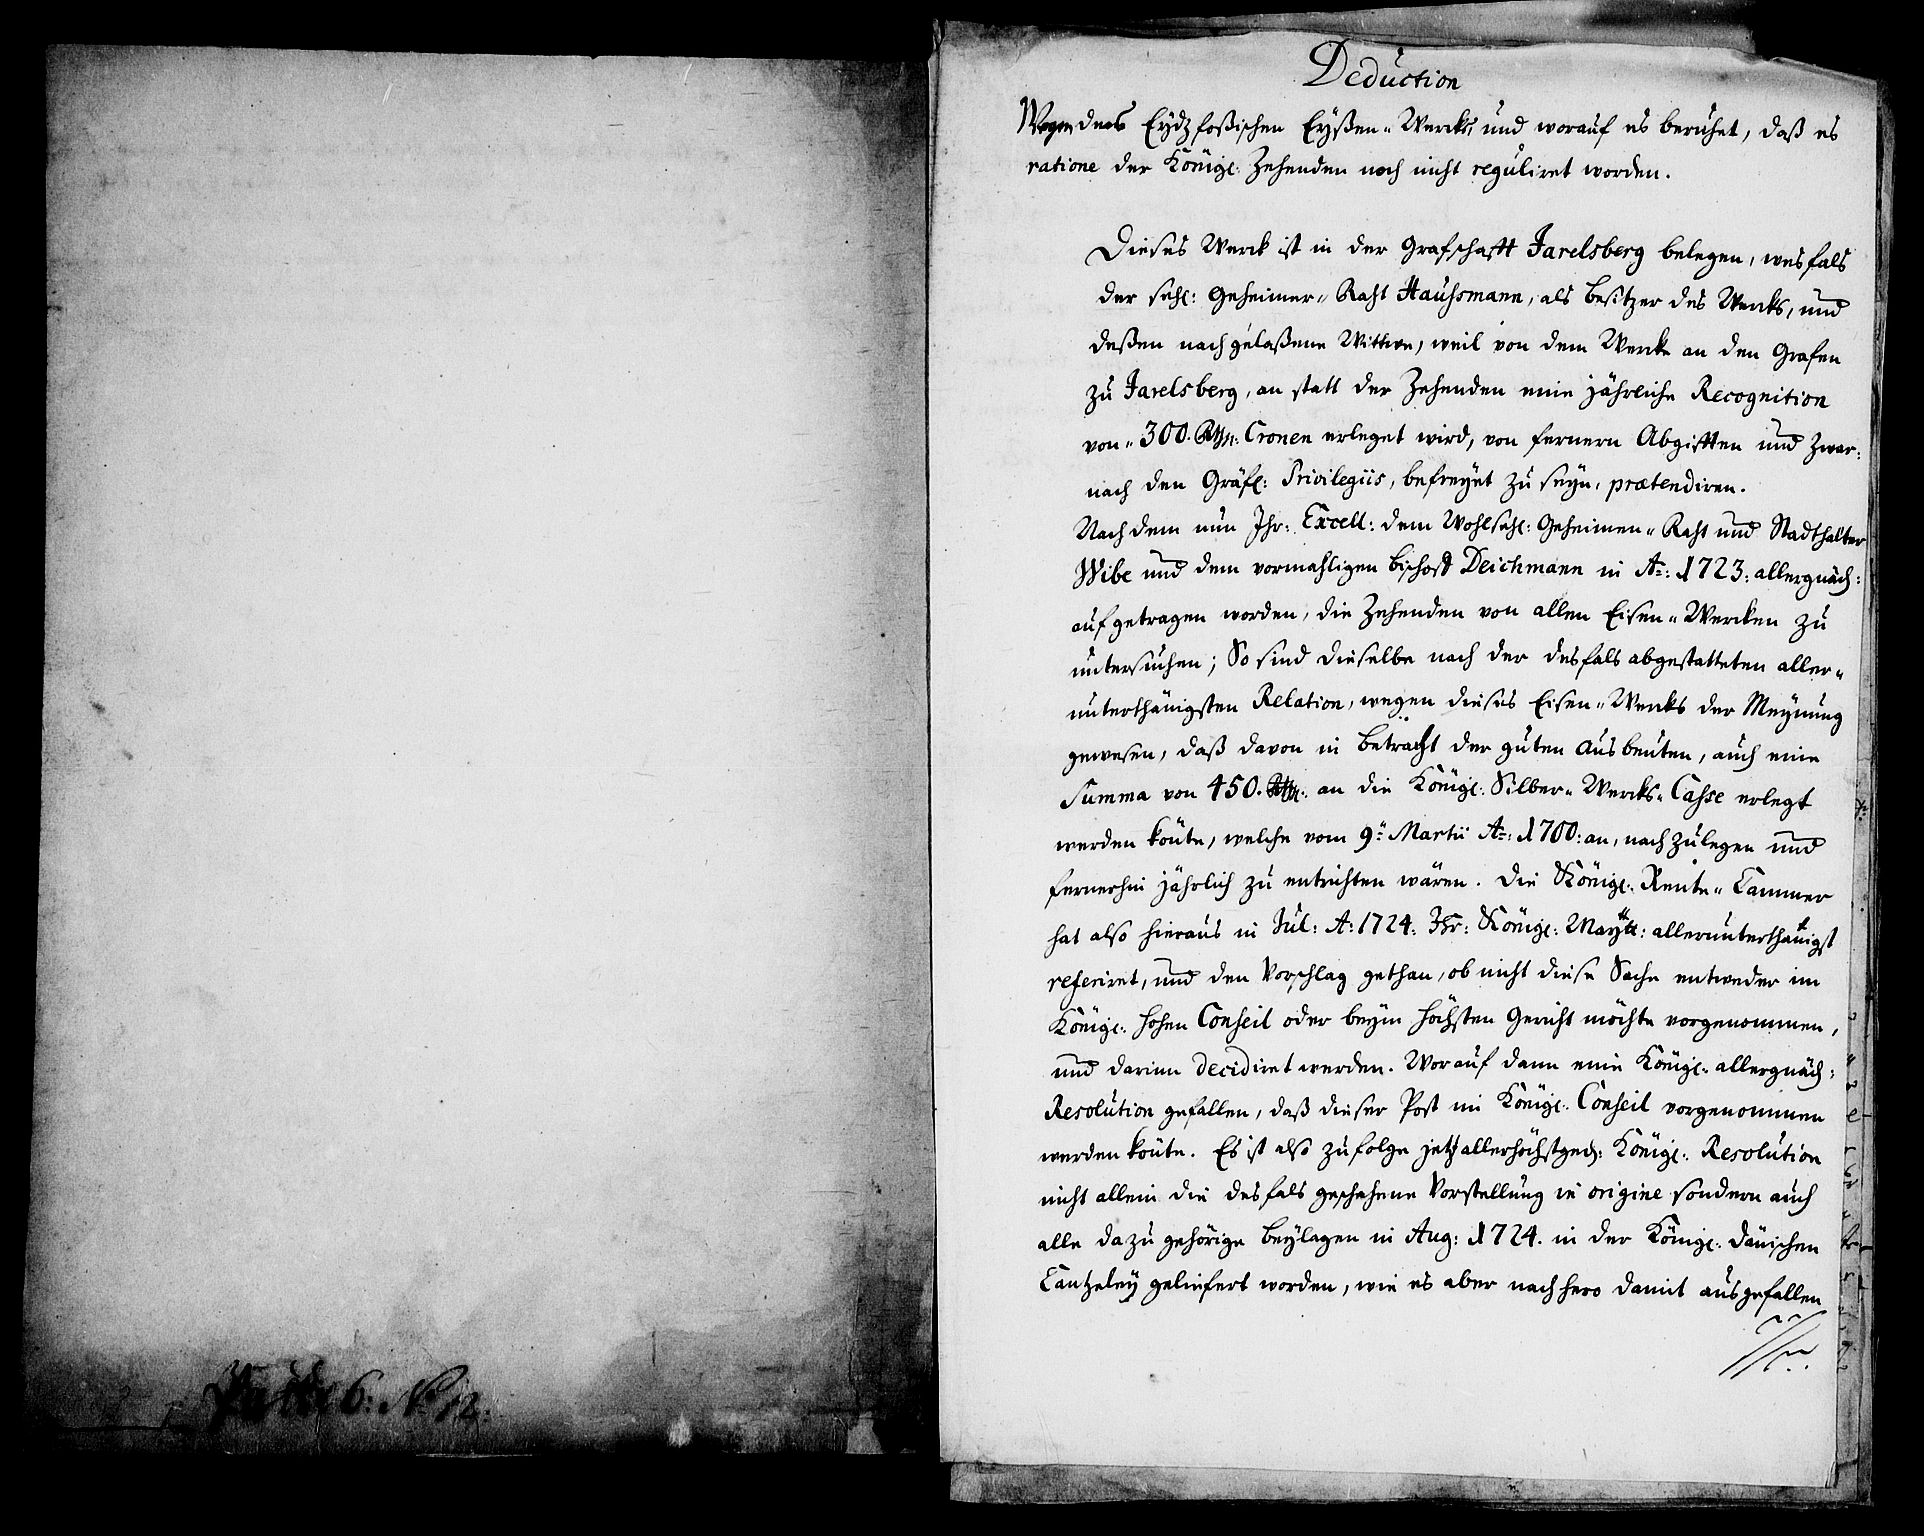 Packe 6: No 12.
Deduction
Wegen des Eydzfoßischen Eyßen-Wercks, und worauf es beruhet, daß es
ratione der Königl: Zehenden noch nicht reguliret worden.
Dieses Werck ist in der Grafschafft Jarelsberg belegen, wesfals
der sehl: Geheimer-Raht Hausmann, als besitzer des Wercks, und
deßen nachgelaßene Wittwe, weil von dem Wercke an den Grafen
zu Jarelsberg, an statt der Zehenden eine jährliche Recognition
von 300. Rthlr: Cronen erleget wird, von fernern Abgifften und zwar
nach den Gräfl: Privilegiis, befreyet zu seyn, prætendiren.
Nach dem nun Ihr: Excell: dem Wohlsehl: Geheimen-Raht und Stadthalter
Wibe und dem vormahligen bischoff Deichmann in Ao: 1723: allergnäd:
aufgetragen worden, die Zehenden von allen Eisen-Wercken zu
untersuchen; So sind dieselbe nach der desfals abgestatteten aller-
unterthänigsten Relation, wegen dieses Eisen-Wercks der Meynung
gewesen, daß davon in betracht der guten ausbeuten, auch eine
Summa von 450. Rthlr: an die Königl: Silber-Wercks-Casse erlegt
werden könte, welche vom 9ten Martii Ao: 1700: an, nachzulegen und
fernerhin jährlich zu entrichten wären. Die Königl: Rente-Cammer
hat also hieraus in Jul: A: 1724: Ihr: Königl: Maytt: allerunterthänigst
referiret, und den Vorschlag gethan, ob nicht diese Sache entweder im
Königl: hohen Conseil oder beym höchsten Gericht möchte vorgenommen,
und darinn decidiret werden. Worauf dann eine Königl: allergnäd:
Resolution gefallen, daß dieser Post im Königl: Conseil vorgenommen
werden könte. Es ist also zufolge jetztallerhöchstged: Königl: Resolution
nicht allein die desfals geschehene Vorstellung in origine sondern auch
alle dazu gehörige beylagen in Aug: 1724. in der Königl: dänischen
Cantzeley geliefert worden, wie es aber nachhero damit ausgefallen